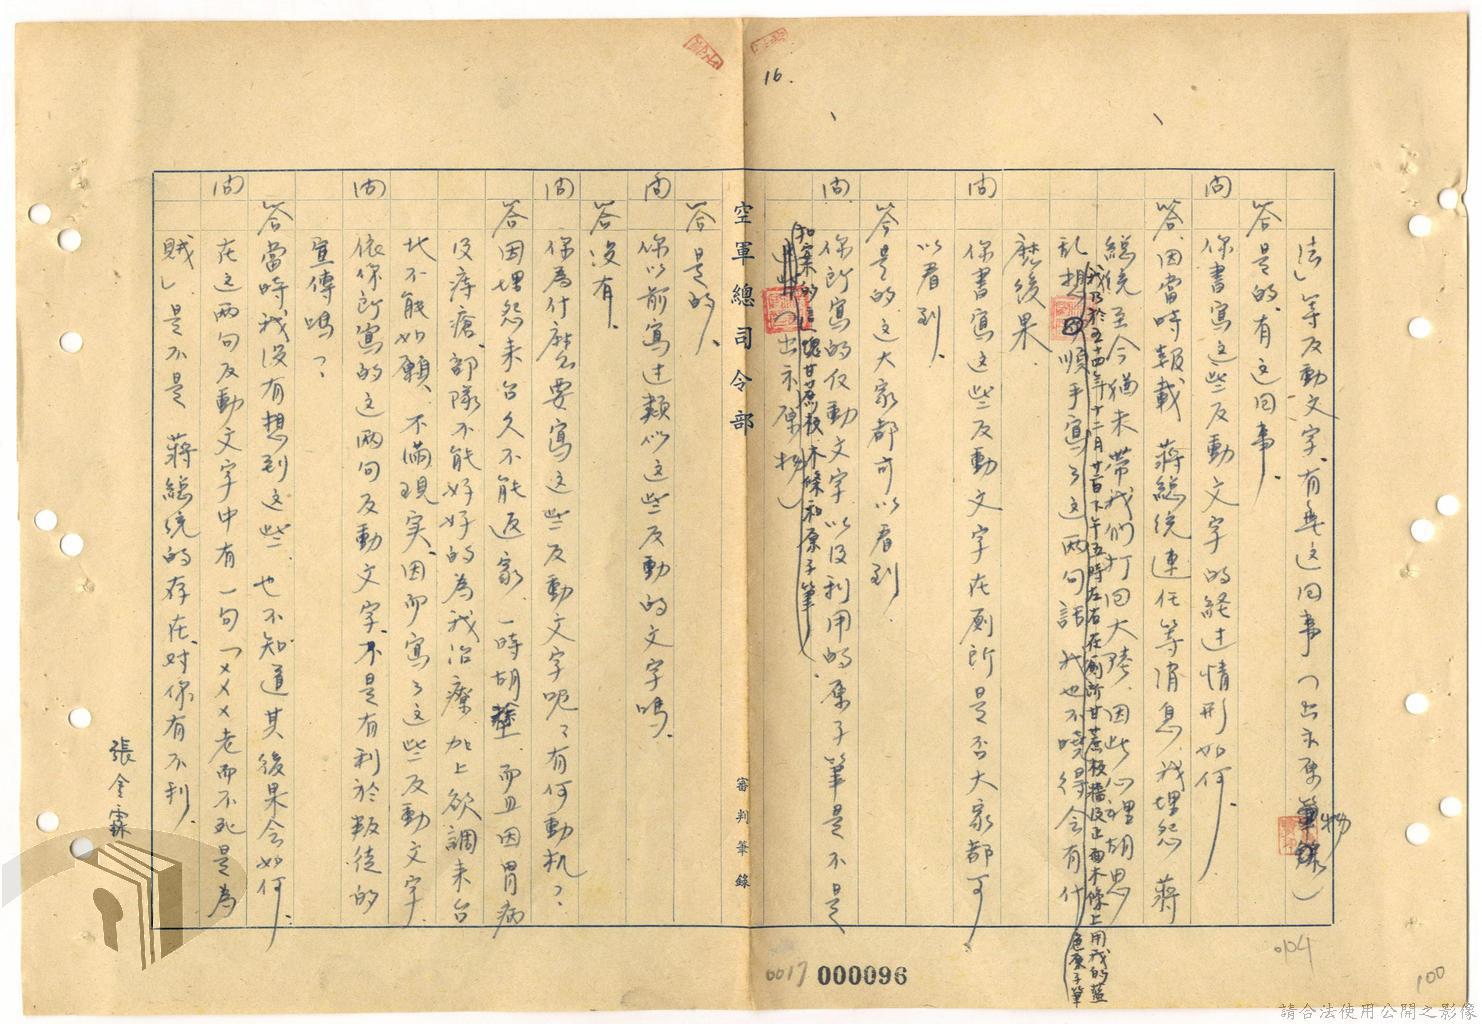 16.
法」等反動文字、有無這回事(出示原物)
答是的、有這回事.
問你書寫這些反動文字的経过情形如何.
答.因當時報載 蔣総統連任等消息、我埋怨 蔣
総統至今猶未帶我們打回大陸、因此心裡胡思
我乃於五十四年十二月廿一日下午五時左右在廁所甘蔗板牆及正面木條上用我的藍色原子筆
乱想順手寫了这兩句話 我也不曉得会有什
麽後果.
問你書寫這些反動文字在厠所是否大家都可
以看到.
答是的、这大家都可以看到.
問你所寫的反動文字以及利用的原子筆是不是
和案的這一塊甘蔗板木條和原子筆
(出示原物)
空軍總司令部
審判筆錄
答是的.
問你以前寫过類似这些反動的文字嗎.
答沒有.
問你為什麽要寫這些反動文字呢?有何動机?
答因埋怨来台久不能返家、一時胡塗、而且因胃病
及痔瘡、部隊不能好好的為我治療、加上欲調来台
北不能如願、不滿現実、因而寫了這些反動文字.
問依你所寫的這兩句反動文字、不是有利於叛徒的
宣傳嗎?
答當時我沒有想到这些、也不知道其後果会如何.
問在这兩句反動文字中有一句「×××老而不死是為
賊」是不是 蔣総统的存在、对你有不利.
張金霖
0017
000096
0104
100
請合法使用公開之影像